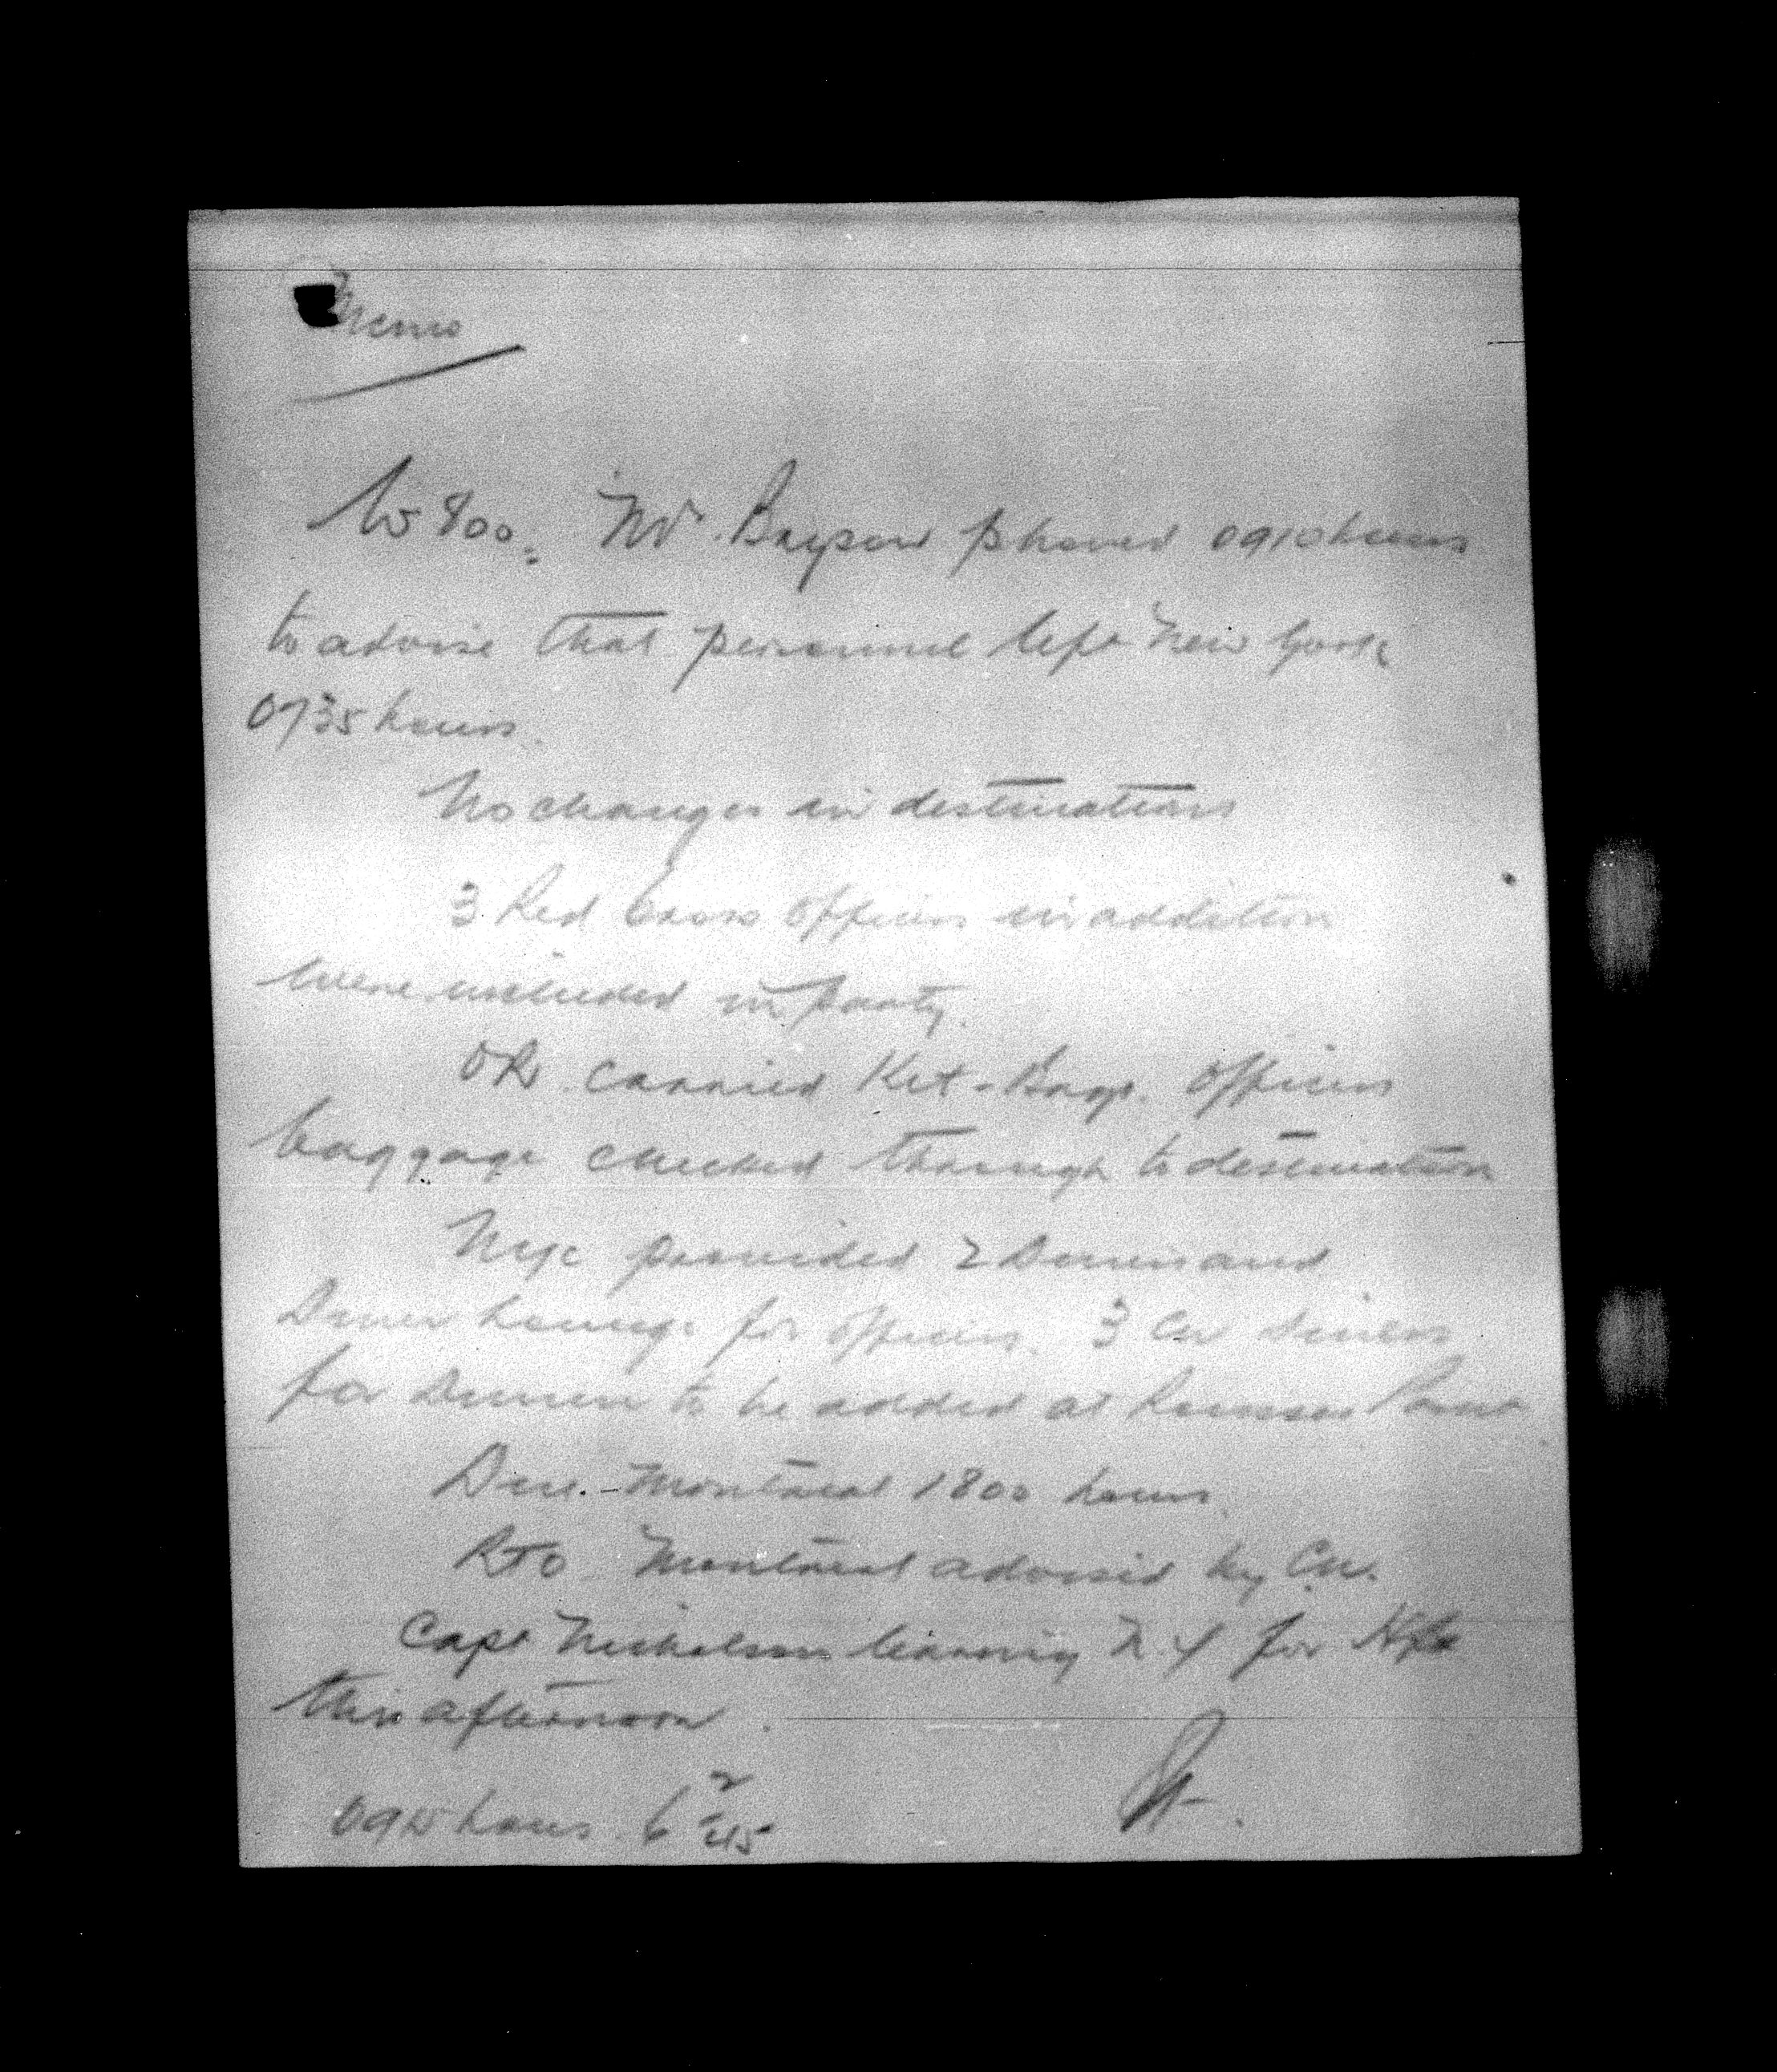 Memo
W 800. Mr. phoned 0910 hours
to advise that personnel left New York
0735 hours.
No changes in destinations
3 Red Cross Officers in addition
were included in party.
OR carried Kit-Bags. Officers
baggage checked through to destination
NYC provided 2 Diners and
Diner Lounge for Officers. 3 CN Diners
for Dinner to be added at Rouses Point
Due - Montreal 1800 hours.
RTO Montreal advised by CN.
Capt Nicholson leaving N.Y for Hfx
this afternoon.
hours 6 2/45